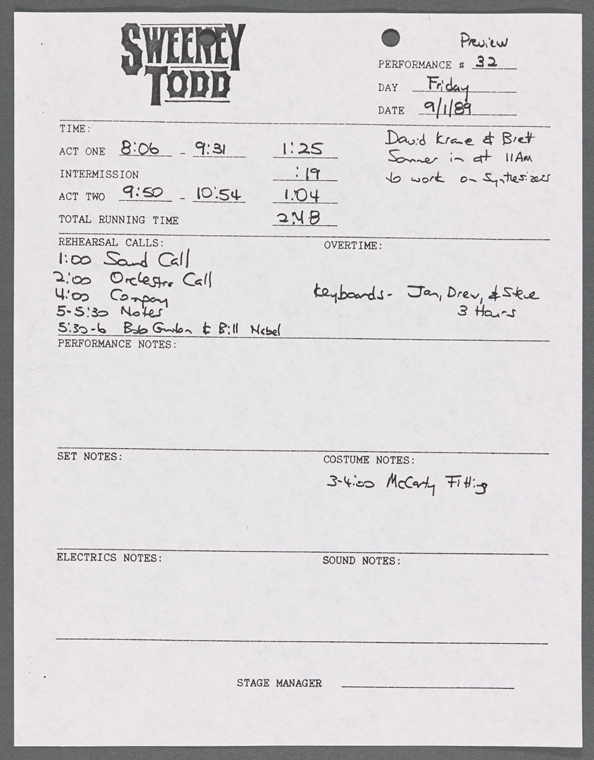 SWEENEY
TODD
Preview
PERFORMANCE # 32
DAY Friday
DATE 9/1/89
TIME:
ACT ONE 8:06 - 9:31 1:25
INTERMISSION :19
ACT TWO 9:50 - 10:54 1:04
TOTAL RUNNING TIME 2:48
David Krane & Brett
Sommer in at 11AM
to work on Synthesizers
REHEARSAL CALLS:
1:00 Sound Call
2:00 Orchestra Call
4:00 Company
5-5:30 Notes
5:30-6 Bob Gunton & Bill Nabel
OVERTIME:
Keyboards- Jan, Drew, & Steve
3 Hours
PERFORMANCE NOTES:
SET NOTES:
COSTUME NOTES:
3-4:00 McCarty Fitting
ELECTRICS NOTES:
SOUND NOTES:
STAGE MANAGER